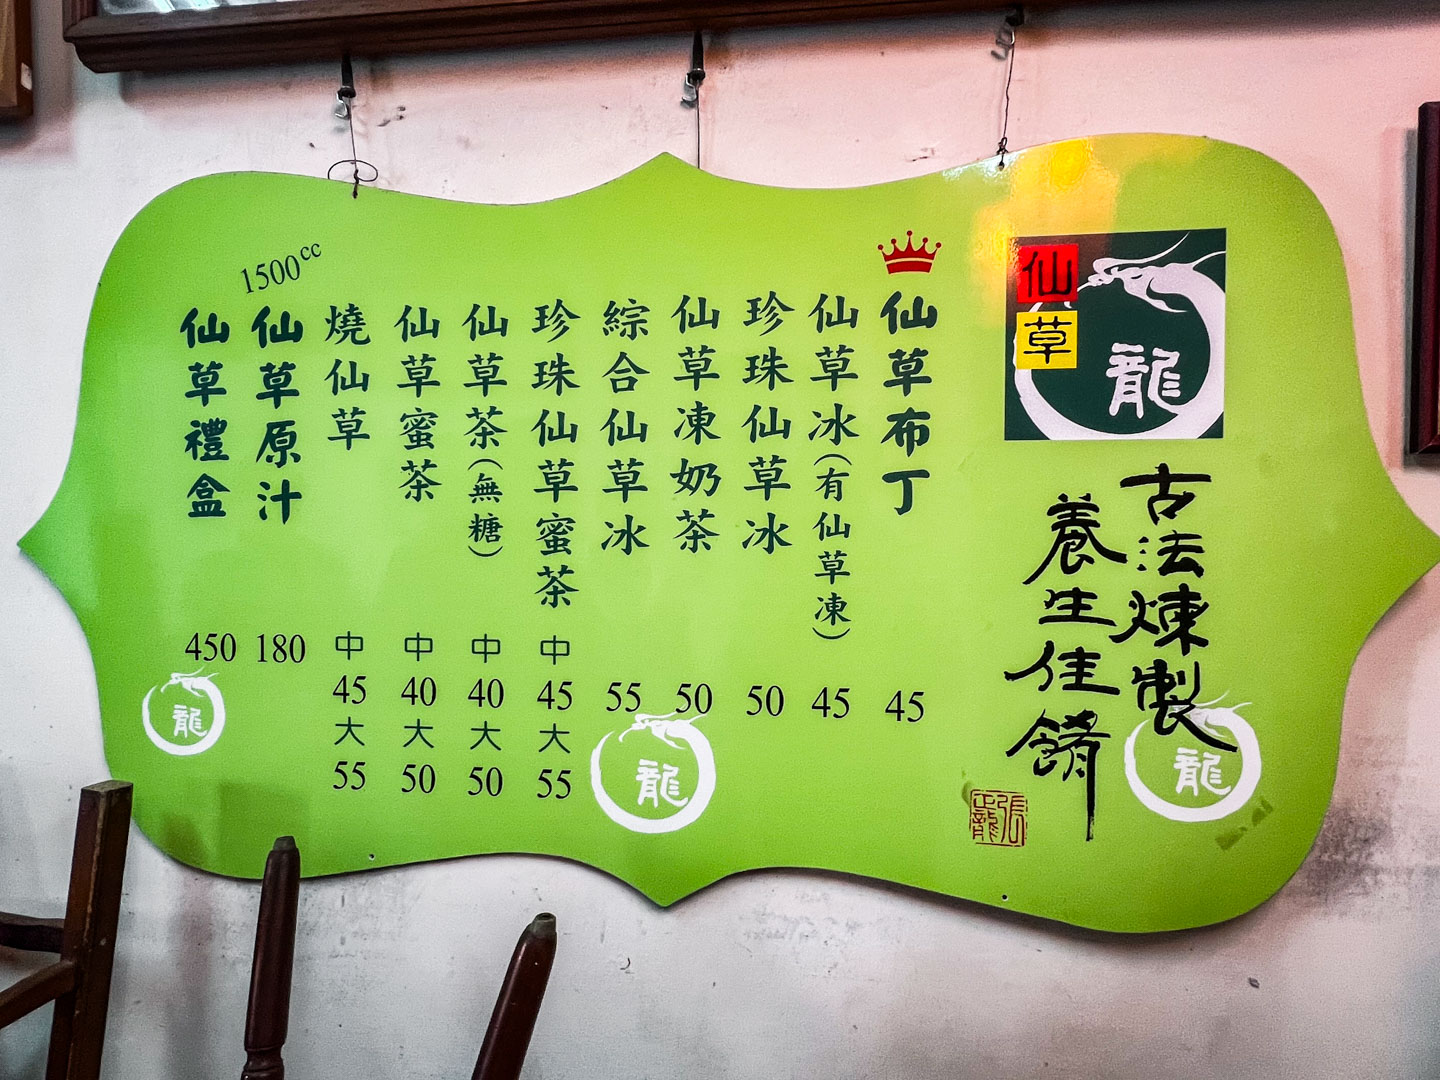 仙草
龍
古法煉製
養生佳餚
張龍
仙草布丁
45
仙草冰(有仙草凍)
45
珍珠仙草冰
50
仙草凍奶茶
50
綜合仙草冰
55
珍珠仙草蜜茶
中
45
大
55
仙草茶(無糖)
中
40
大
50
仙草蜜茶
中
40
大
50
燒仙草
中
45
大
55
1500cc
仙草原汁
180
仙草禮盒
450
龍
龍
龍